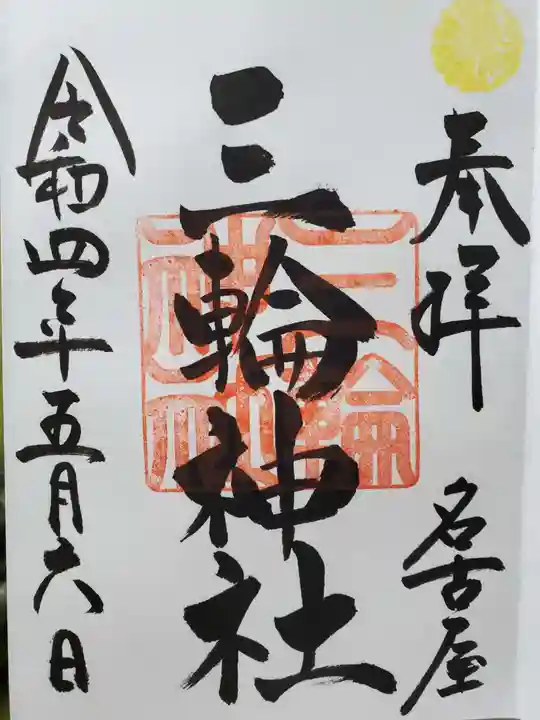 奉拝
名古屋
三輪神社
令和四年五月六日